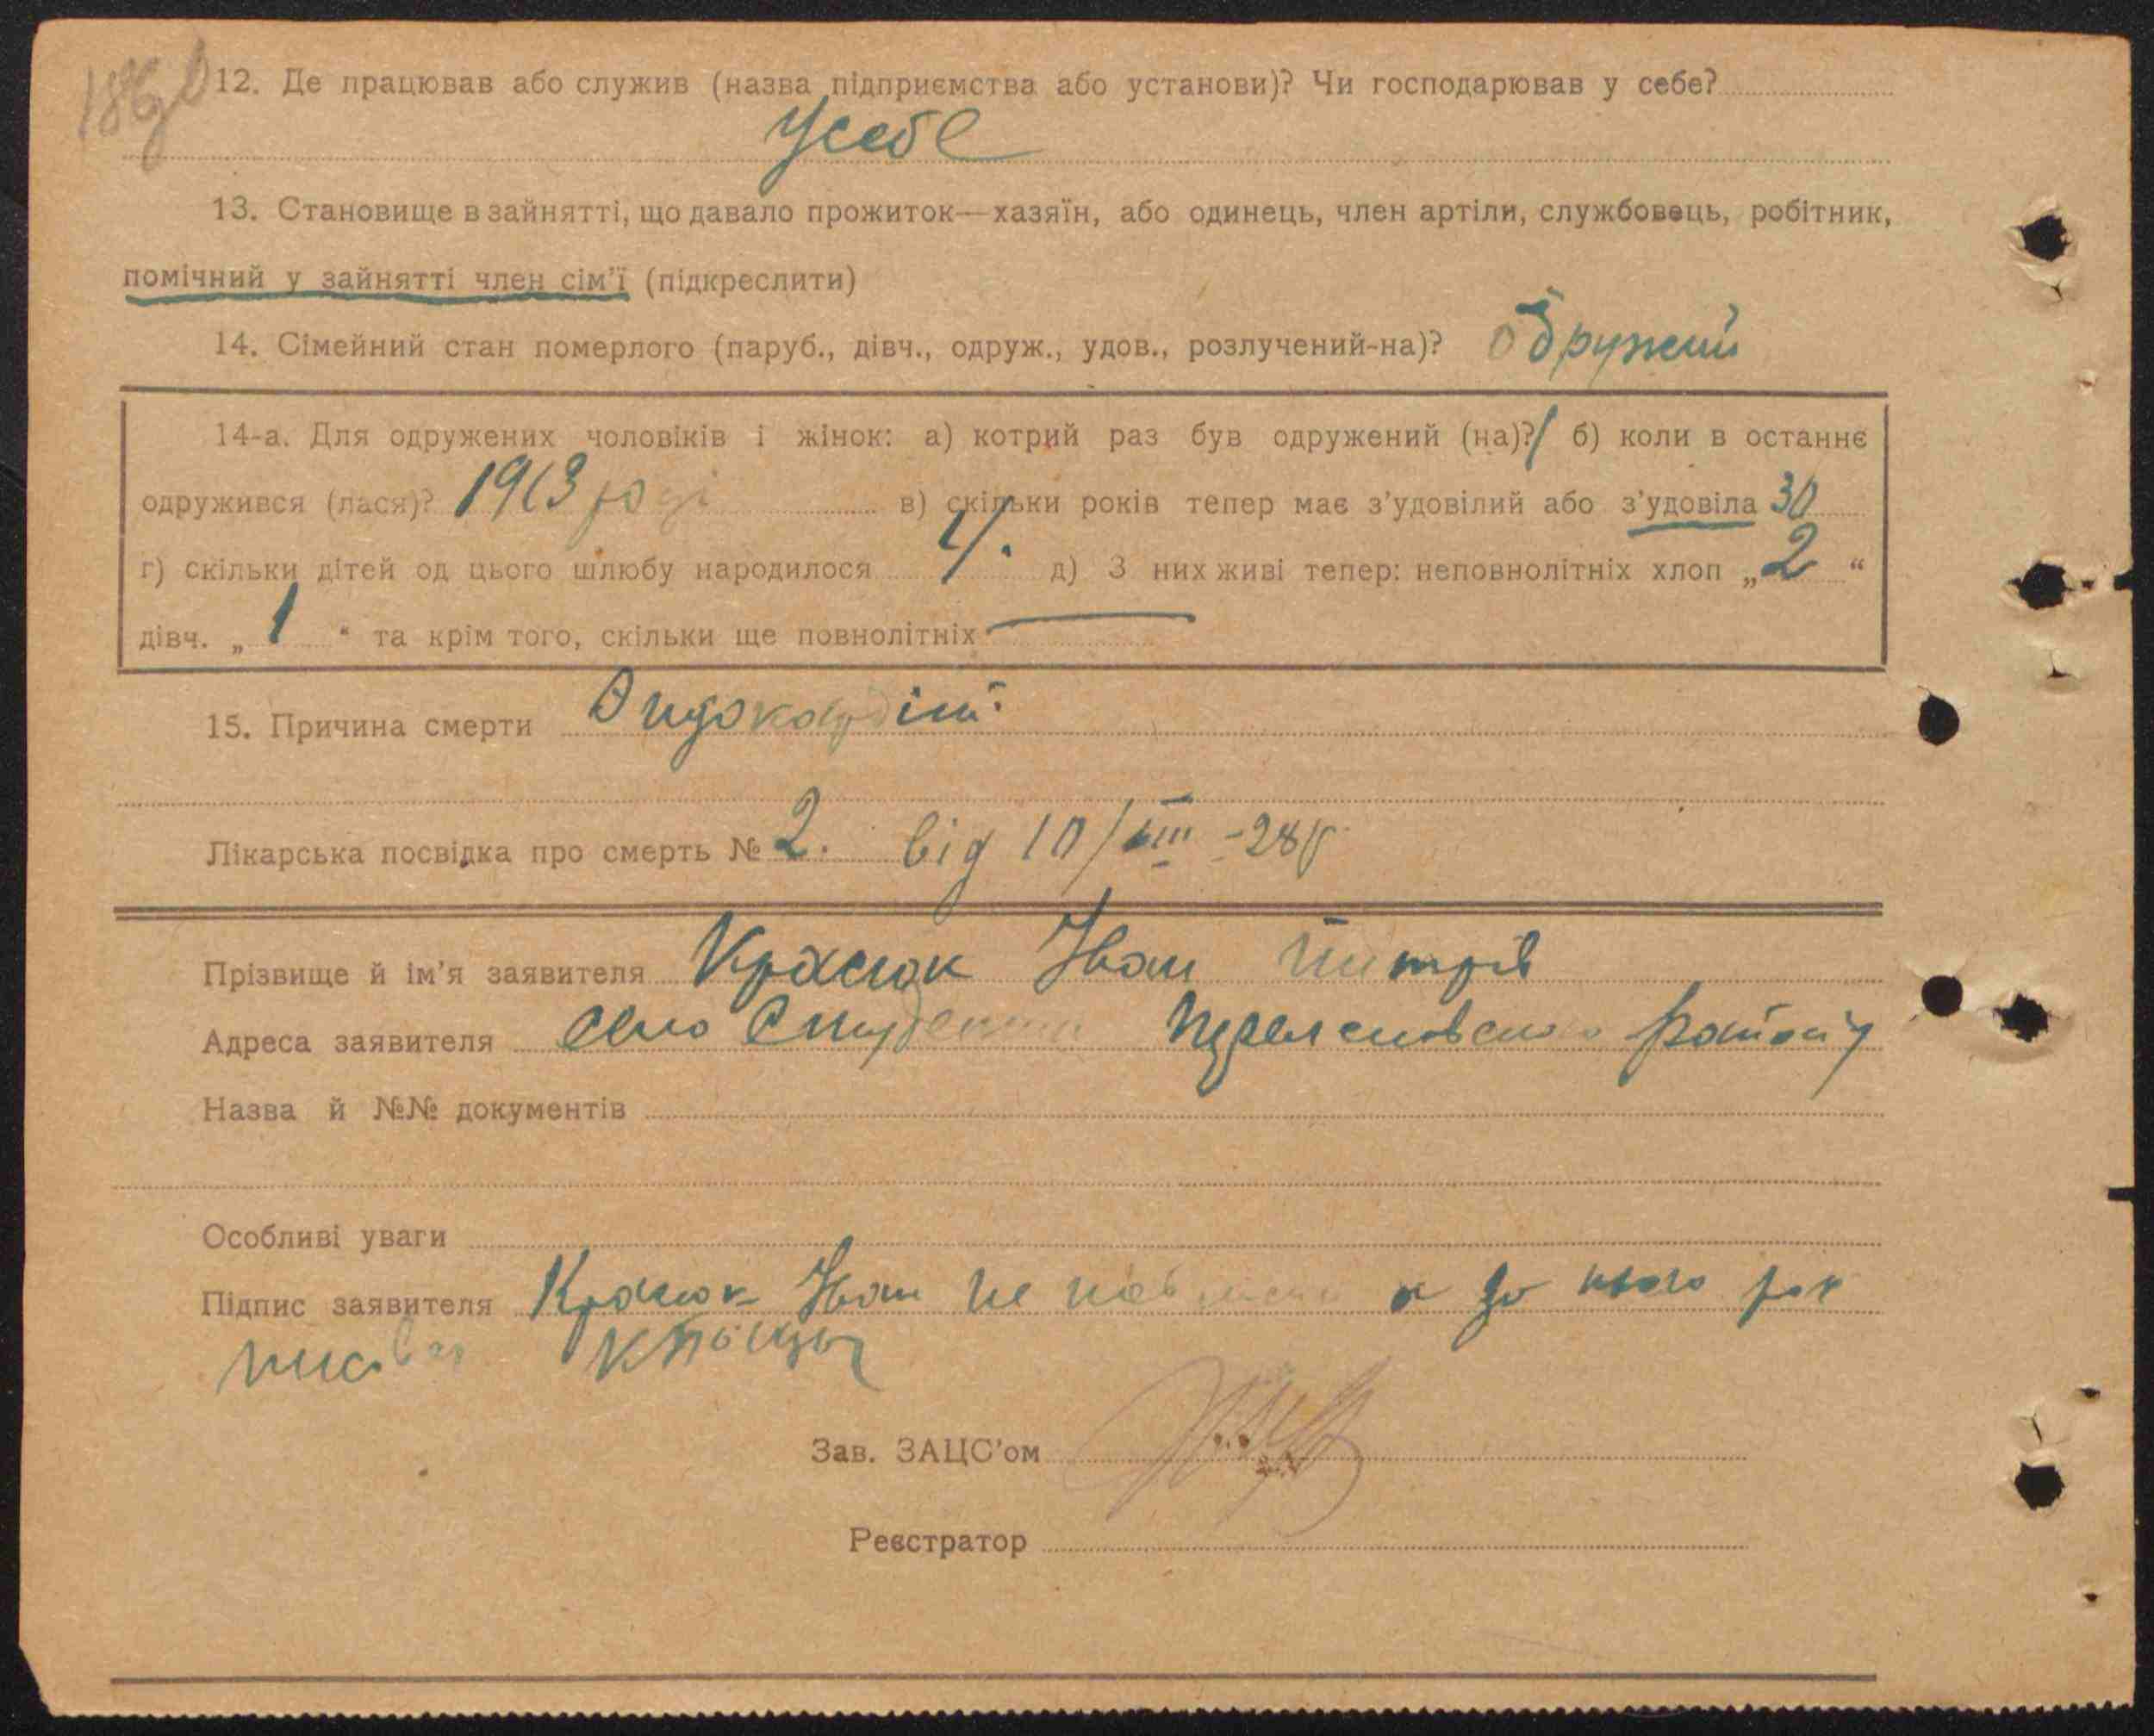 12. Де працював або служив (назва підприємства або установи)? Чи господарював у себе?
Усебе
13. Становище в зайнятті, що давало прожиток—хазяїн, або одинець, член артіли, службовець, робітник,
помічний у зайнятті член сім'ї (підкреслити)
14. Сімейний стан померлого (паруб., дівч., одруж., удов., розлучений-на)?
14-а. Для одружених чоловіків і жінок: а) котрий раз був одружений (на)? 1 б) коли в останнє
одружився (лася)? 1913 році в) скільки років тепер має з'удовілий або з'удовіла 30
г) скільки дітей од цього шлюбу народилося 4. д) З них живі тепер: неповнолітніх хлоп „ 2 “
дівч. „ 1 “ та крім того, скільки ще повнолітніх —
15. Причина смерти
Лікарська посвідка про смерть № 2. від 10/VIII -28р.
Прізвище й ім'я заявителя Красюк Іван
Адреса заявителя село района
Назва й №№ документів
Особливі уваги
Підпис заявителя Красюк Іван а до нього
Зав. ЗАЦС'ом
Реєстратор